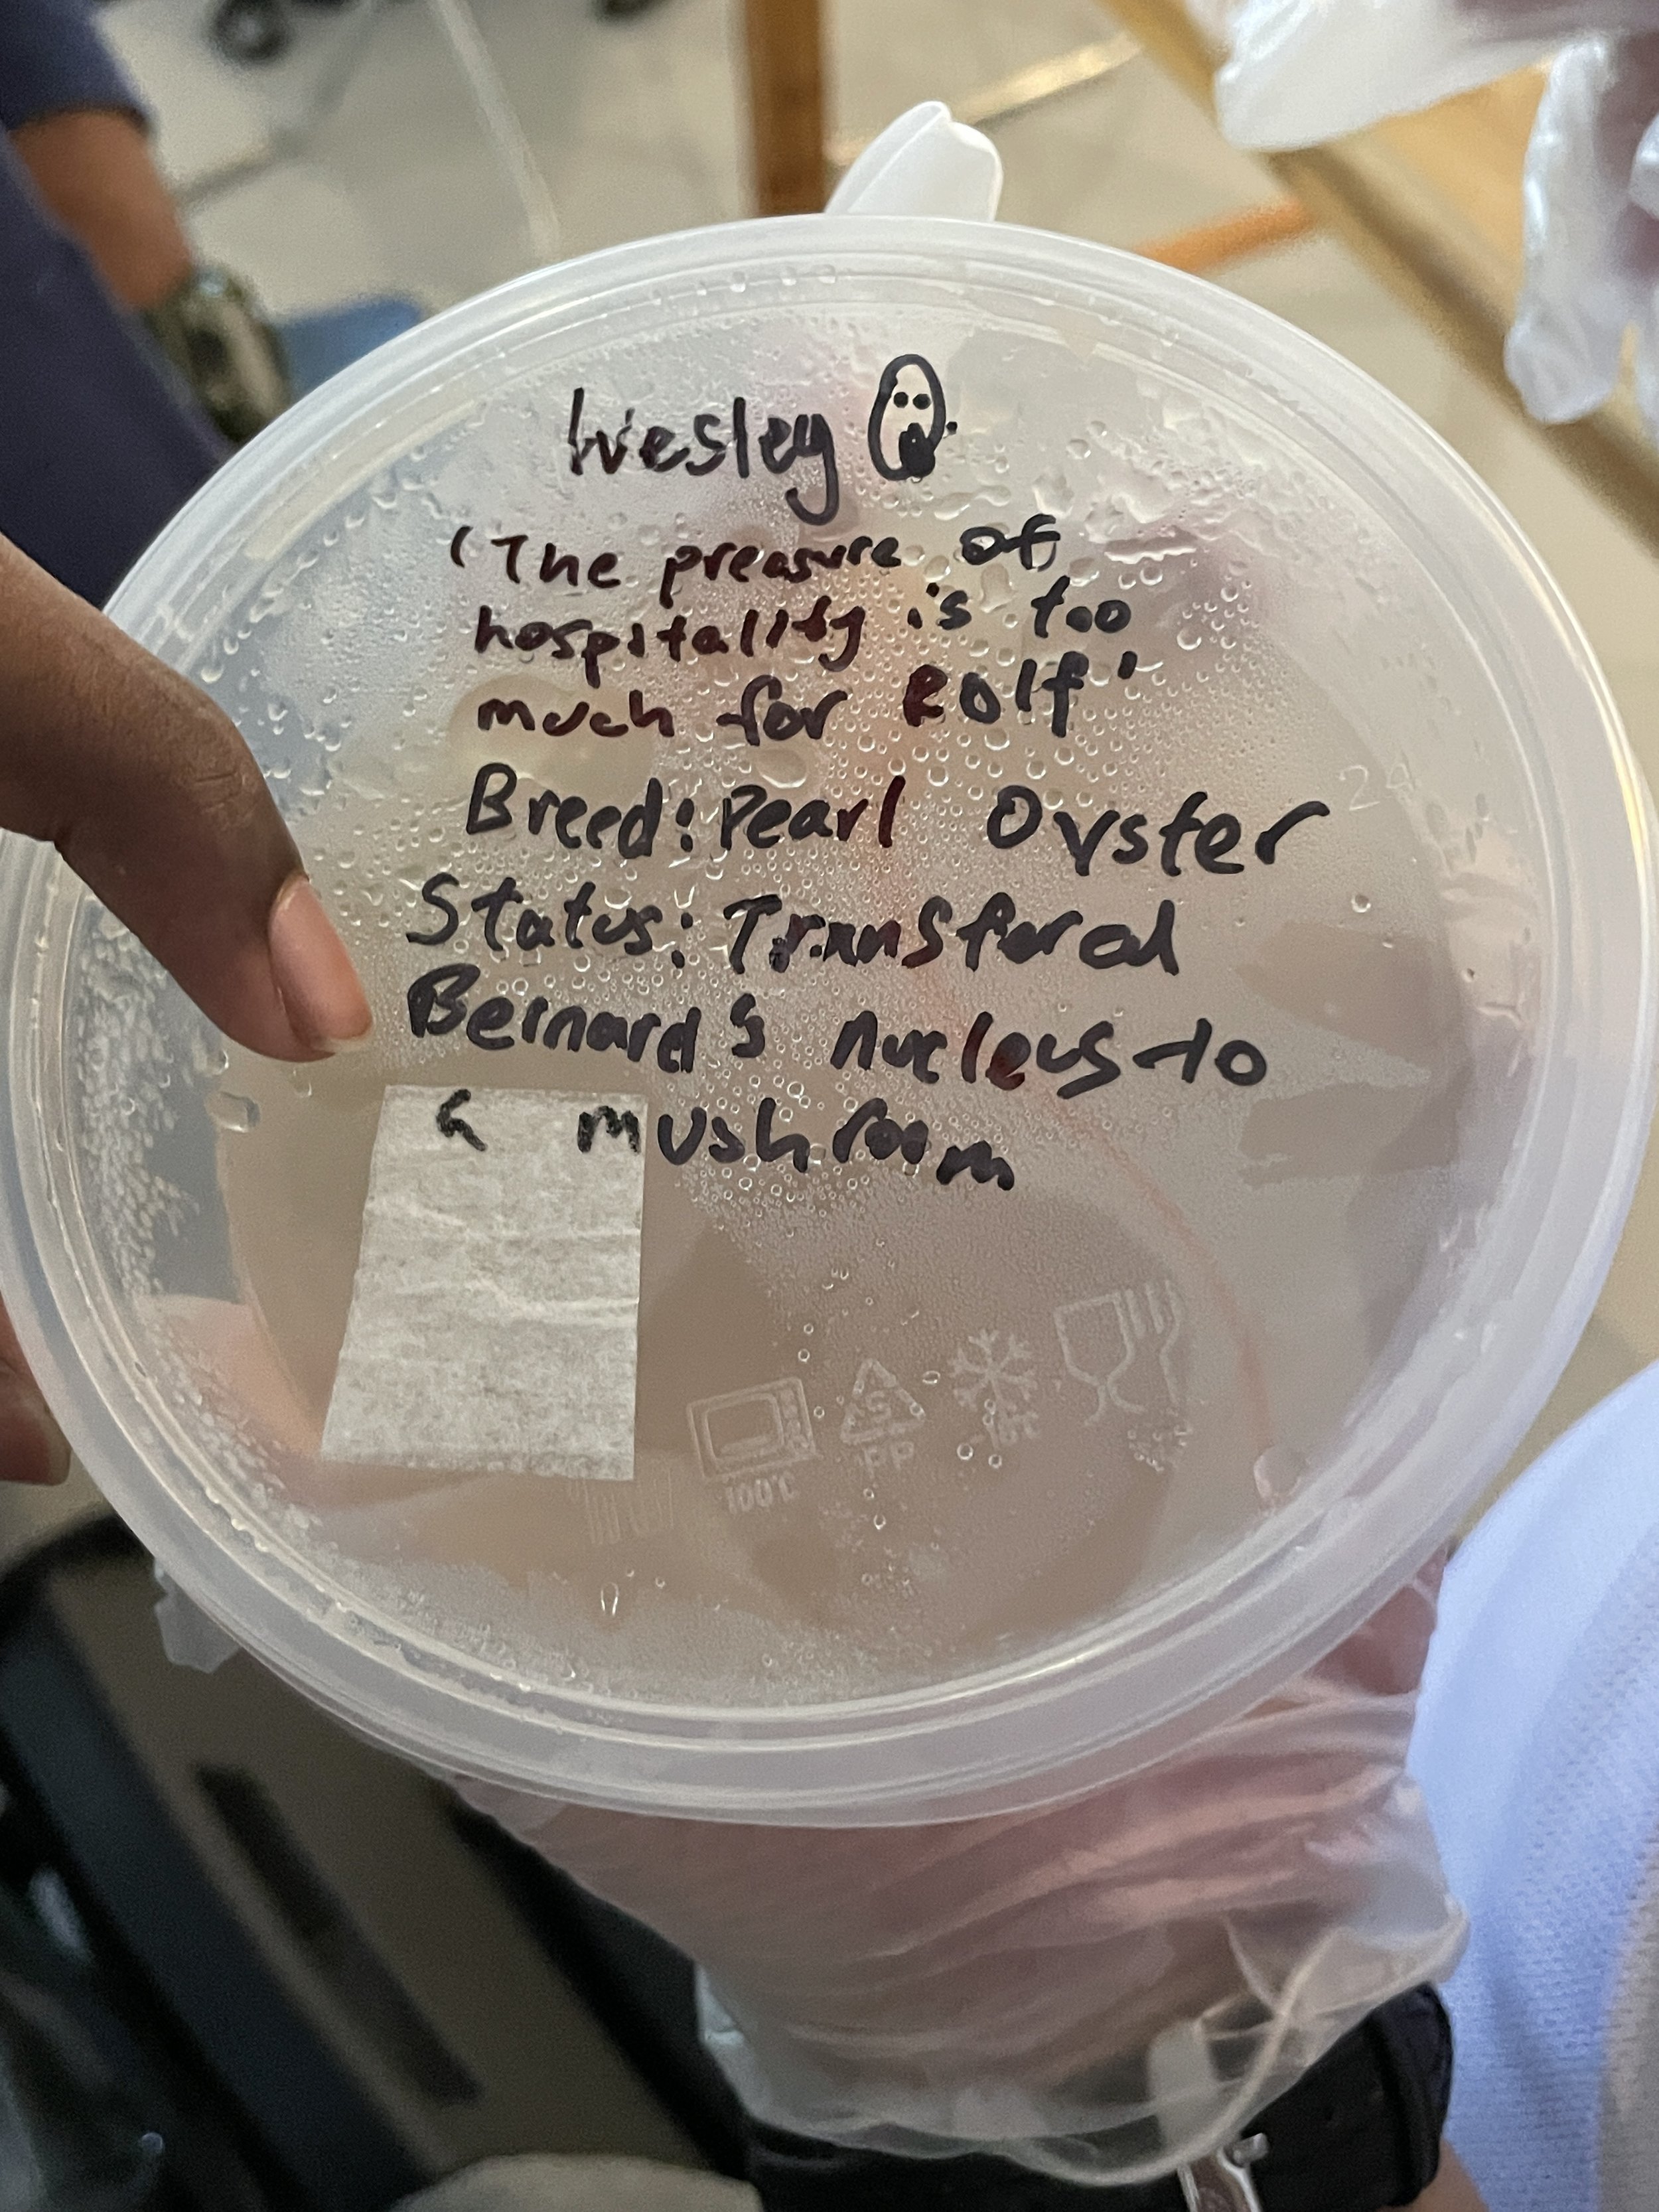 Wesley
'The preasure of
hospitality is too
much for Rolf'
Breed: Pearl Oyster
Status: Transferal
Bernard's nucleus to
a mushroom
24
100°C
5
PP
-18°C